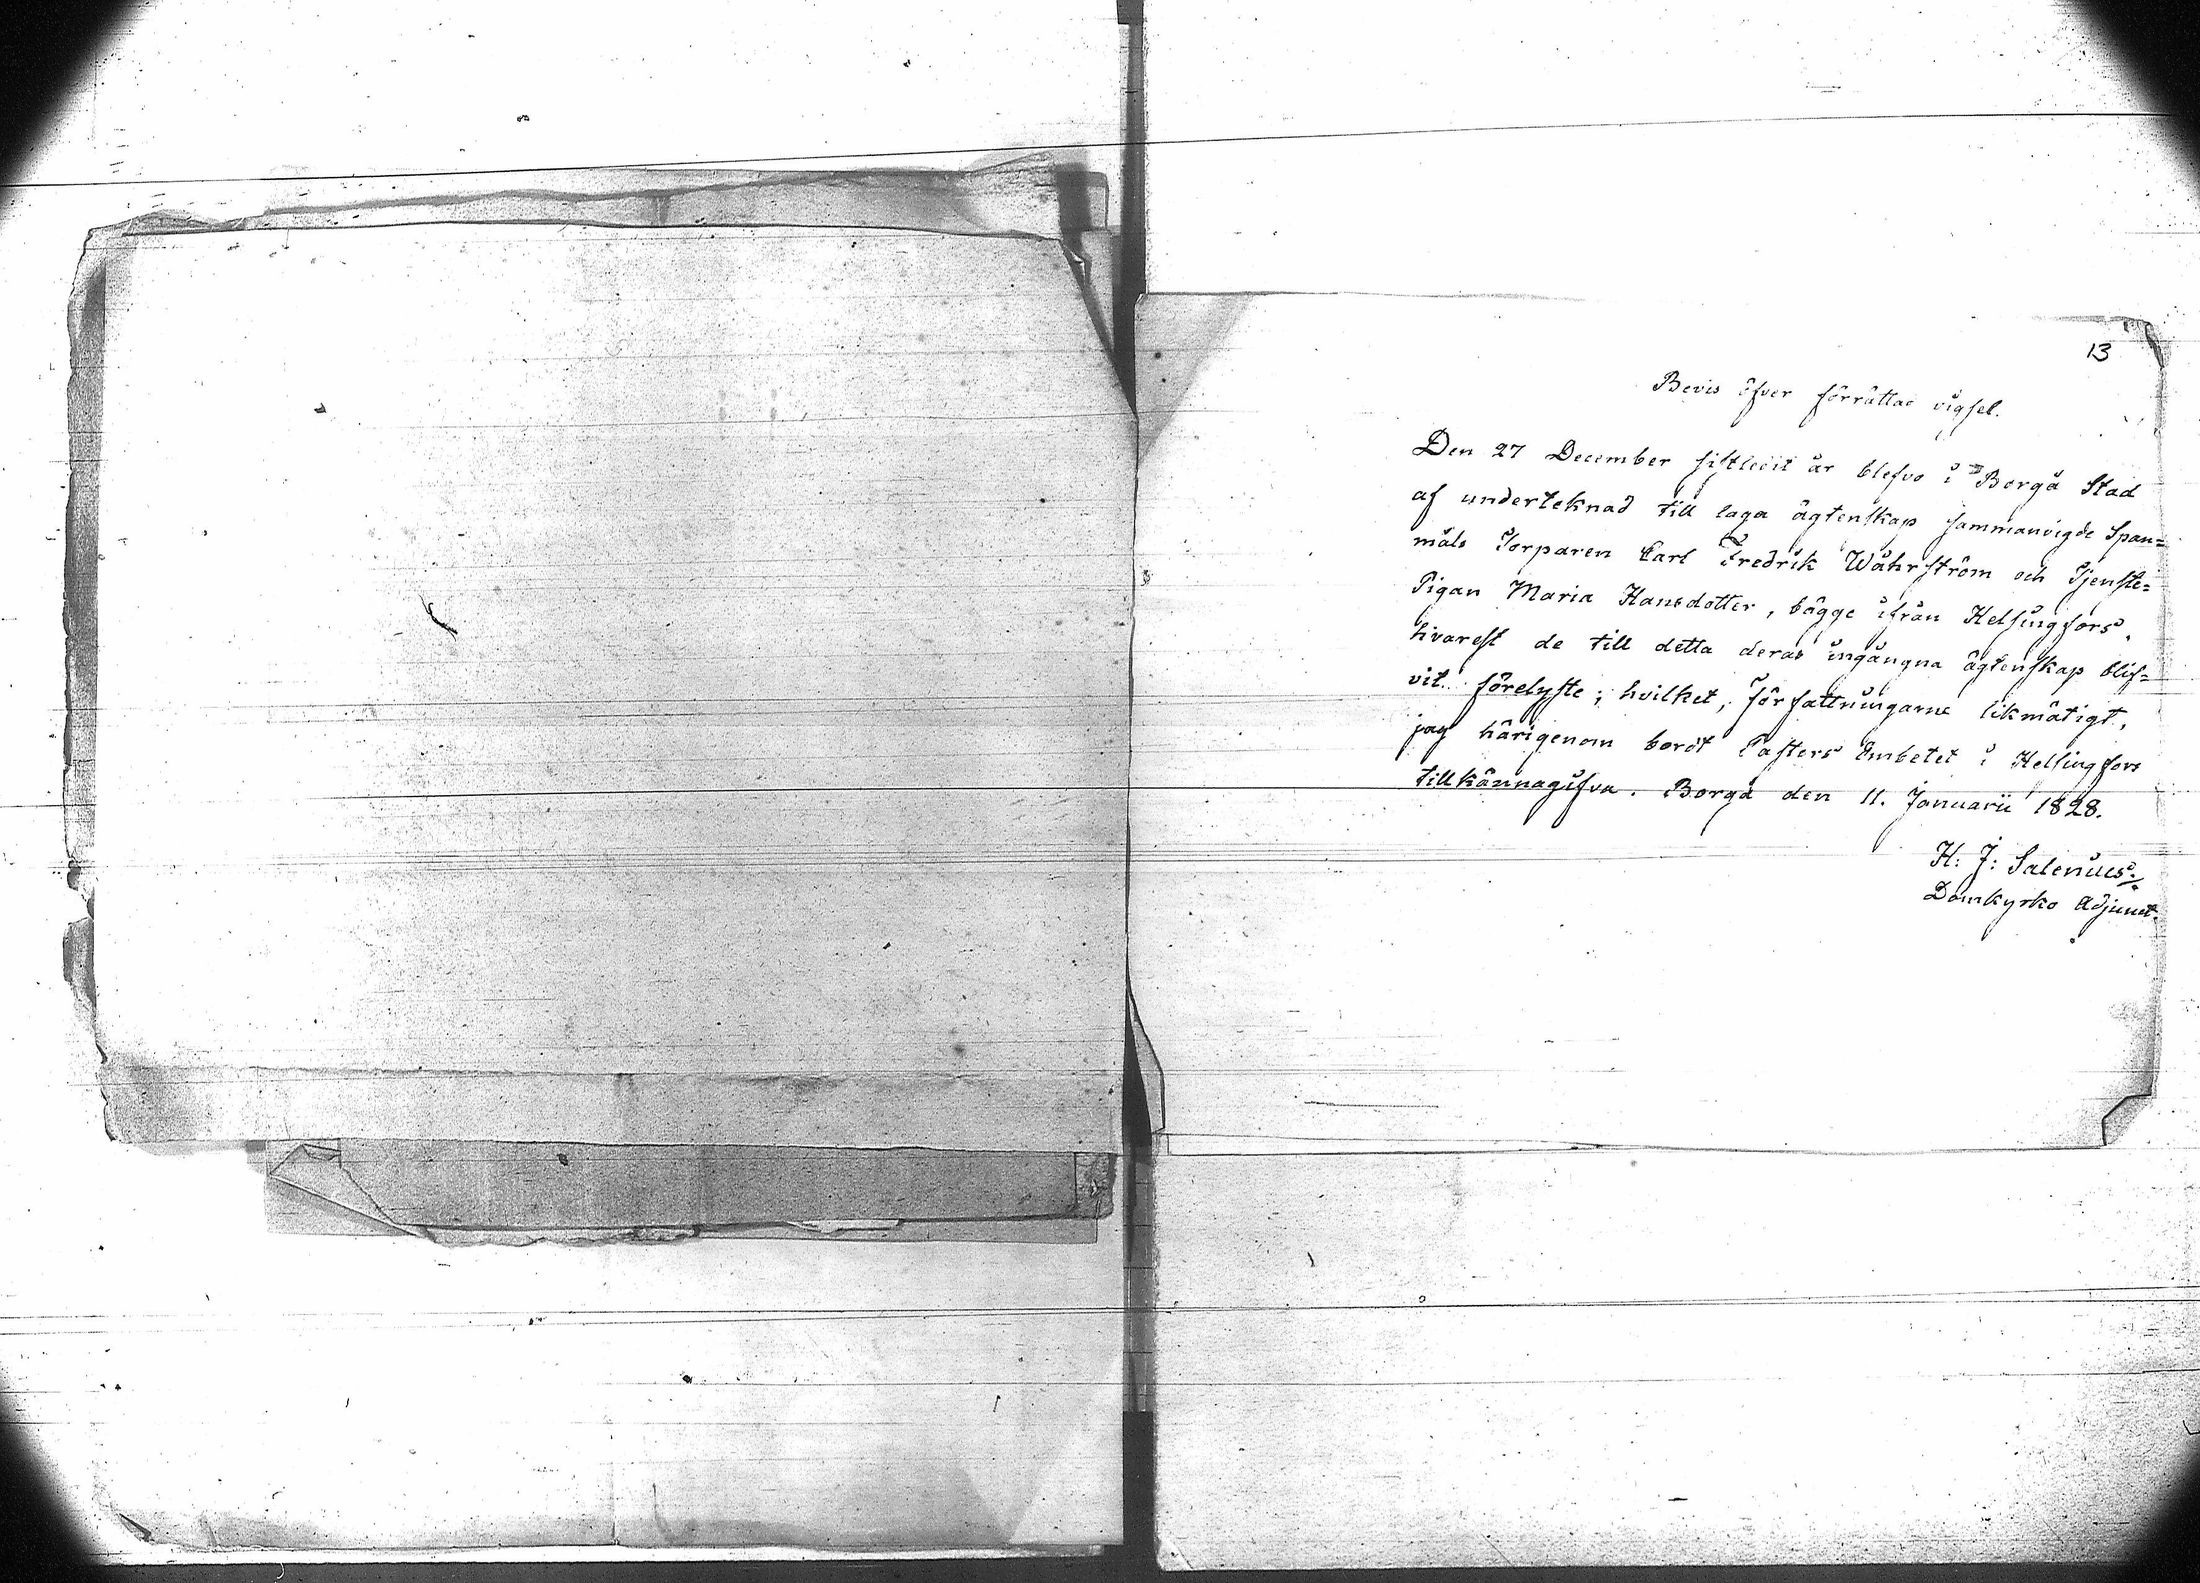 13
Bevis öfver förrättad vigsel.
Den 27 December sistledit år blefvo i Borgå Stad
af underteknad till laga ägtenskap sammanvigde Span-
måls Torparen Carl Fredrik Wåhrström och Tjenste-
Pigan Maria Hansdotter, bägge ifrån Helsingfors,
hvarest de till detta deras ingångna ägtenskap blif-
vit förelyste; hvilket, författningarne likmätigt,
jag härigenom bordt Pastors Embetet i Helsingfors
tillkännagifva. Borgå den 11. Januarii 1828.
H: J: Salenius
Domkyrko Adjunct.